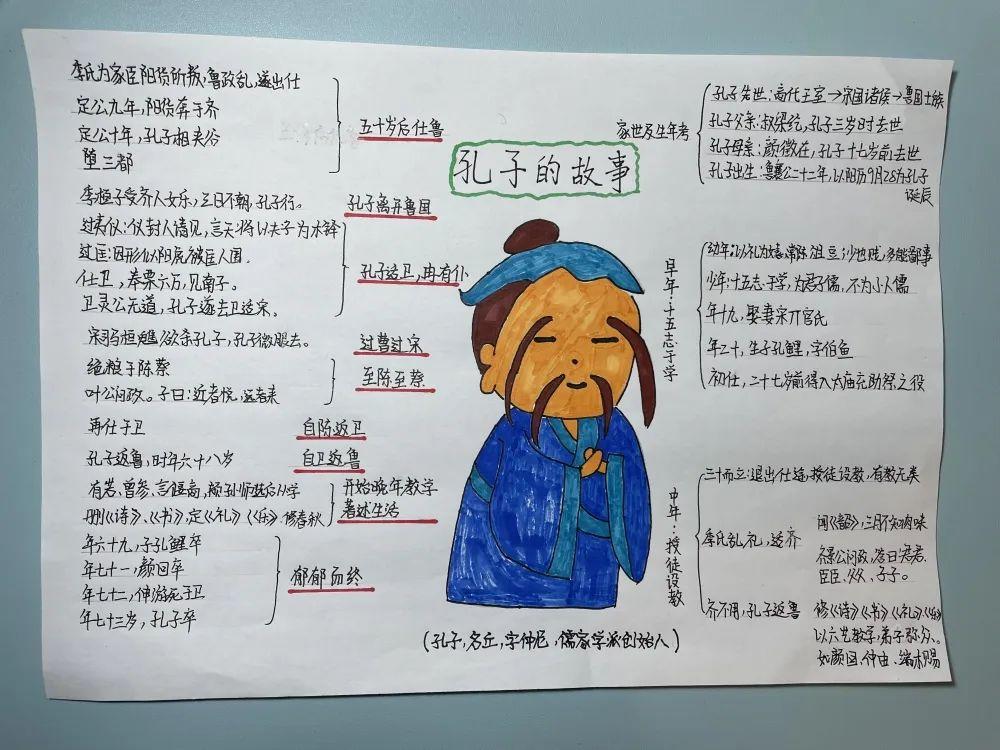 孔子的故事
家世及生年考
孔子先世：商代王室→宋国诸侯→鲁国士族
孔子父亲：叔梁纥，孔子三岁时去世
孔子母亲：颜徵在，孔子十七岁前去世
孔子出生：鲁襄公二十二年，以阳历9月28为孔子
诞辰
早年·十五志于学
幼年：以礼为嬉，常陈俎豆；少也贱，多能鄙事
少年：十五志于学，为君子儒，不为小人儒
年十九，娶妻宋亓官氏
年二十，生子孔鲤，字伯鱼
初仕，二十七岁前得入太庙充助祭之役
中年·授徒设教
三十而立：退出仕途，授徒设教，有教无类
季氏乱礼，适齐
闻《韶》，三月不知肉味
齐景公问政，答曰君君、
臣臣、父父、子子。
齐不用，孔子返鲁
修《诗》《书》《礼》《乐》
以六艺教学，弟子弥众。
如颜回、仲由、端木赐
五十岁后仕鲁
季氏为家臣阳货所叛，鲁政乱，遂出仕
定公九年，阳货奔于齐
定公十年，孔子相夹谷
堕三都
孔子离开鲁国
季桓子受齐人女乐，三日不朝，孔子行。
孔子适卫，冉有仆
过仪：仪封人请见，言天将以夫子为木铎
过匡：因形似阳虎被匡人围。
仕卫，奉粟六万，见南子。
卫灵公无道，孔子遂去卫适宋。
过曹过宋
宋司马桓魋欲杀孔子，孔子微服去。
至陈至蔡
绝粮于陈蔡
叶公问政。子曰：近者悦，远者来
自陈返卫
再仕于卫
自卫返鲁
孔子返鲁，时年六十八岁
开始晚年教学
著述生活
有若、曾参、言偃、颛孙师继后从学
删《诗》、《书》，定《礼》《乐》，修春秋
郁郁而终
年六十九，子孔鲤卒
年七十一，颜回卒
年七十二，仲由死于卫
年七十三岁，孔子卒
（孔子，名丘，字仲尼，儒家学派创始人）